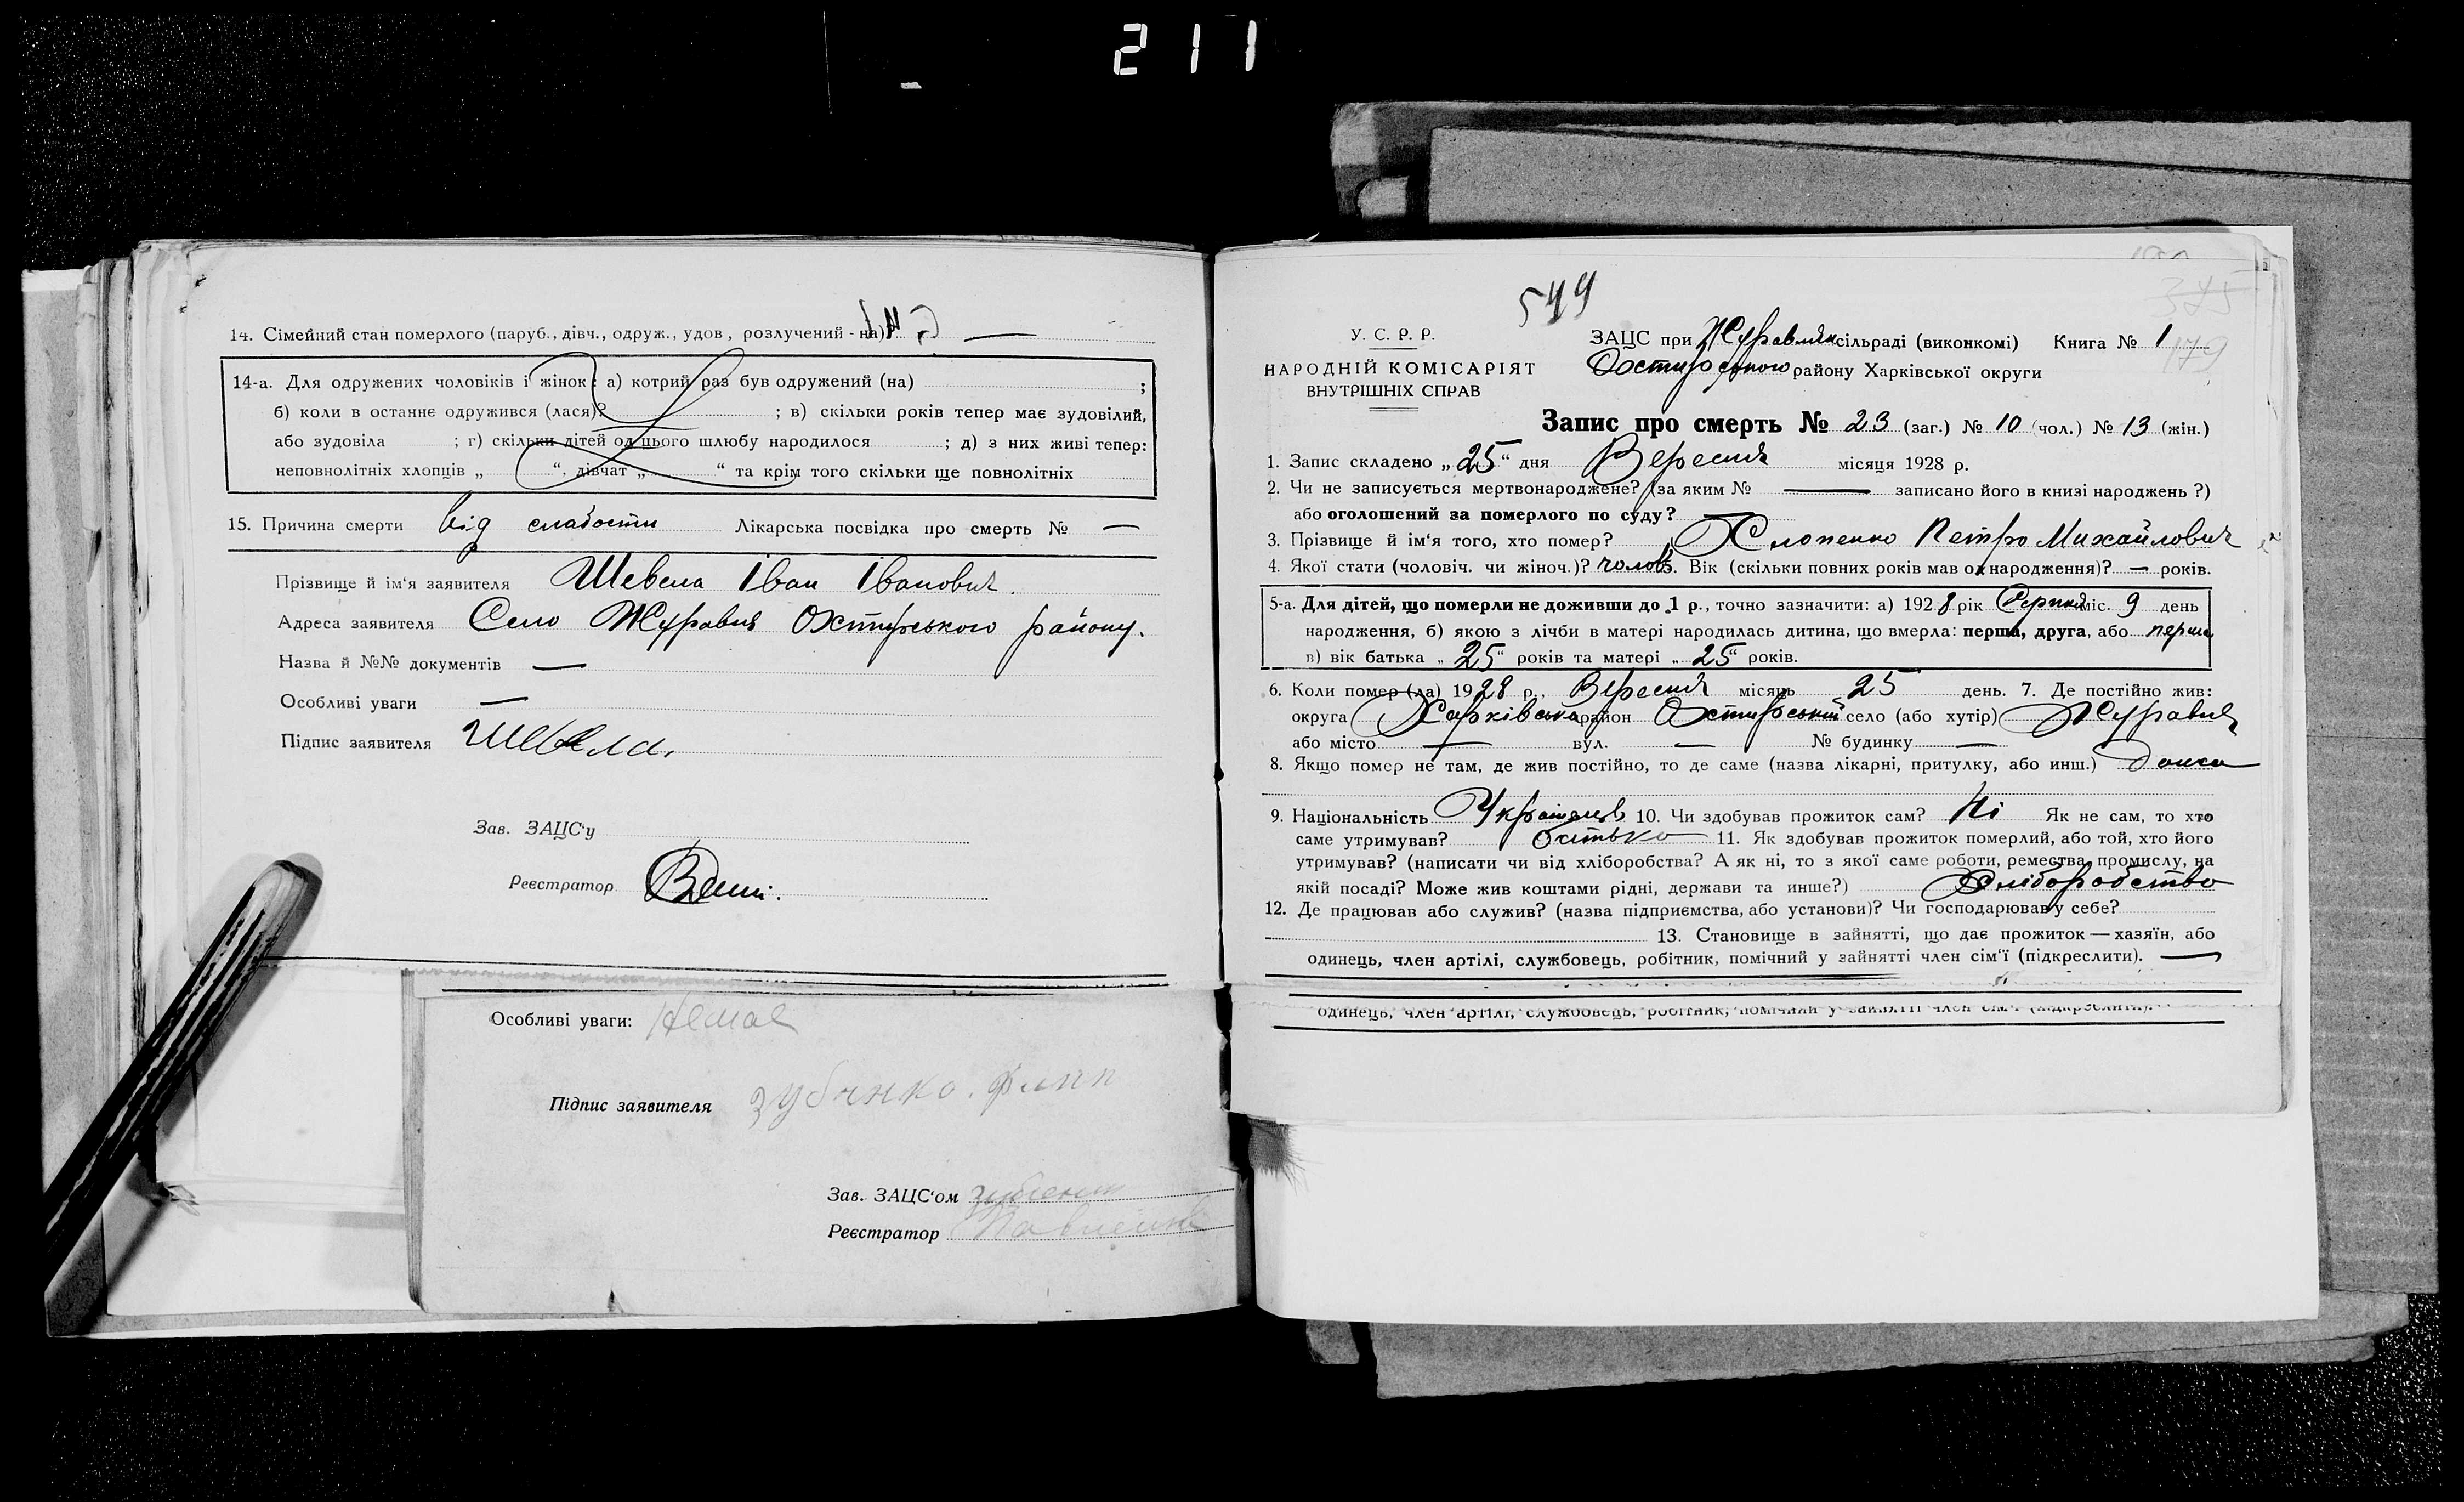 211
14. Сімейний стан померлого (паруб., дівч., одруж., удов., розлучений - на) —
14-а. Для одружених чоловіків і жінок: а) котрий раз був одружений (на) ;
б) коли в останнє одружився (лася)? ; в) скільки років тепер має зудовілий,
або зудовіла ; г) скільки дітей од цього шлюбу народилося ; д) з них живі тепер:
неповнолітніх хлопців „ “, дівчат „ “ та крім того скільки ще повнолітніх
15. Причина смерти від слабости Лікарська посвідка про смерть № —
Прізвище й ім'я заявителя Шевела Іван Іванович.
Адреса заявителя Село Журавне Охтирського району.
Назва й №№ документів —
Особливі уваги —
Підпис заявителя Шевела.
Зав. ЗАЦС'у
Реєстратор
Особливі уваги: Немае
Підпис заявителя
Зав. ЗАЦС'ом
Реєстратор
549
375
179
У. С. Р. Р.
НАРОДНІЙ КОМІСАРІЯТ
ВНУТРІШНІХ СПРАВ
ЗАЦС при Журавлян сільраді (виконкомі) Книга № 1
Охтирського району Харківської округи
Запис про смерть № 23 (заг.) № 10 (чол.) № 13 (жін.)
1. Запис складено „25“ дня Вересня місяця 1928 р.
2. Чи не записується мертвонароджене? (за яким № — записано його в книзі народжень ?)
або оголошений за померлого по суду? —
3. Прізвище й ім'я того, хто помер? Хлопенко Петро Михайлович
4. Якої стати (чоловіч. чи жіноч.)? чолов. 5. Вік (скільки повних років мав од народження)? — років.
5-а. Для дітей, що померли не доживши до 1 р., точно зазначити: а) 1928 рік Серпня міс. 9 день
народження, б) якою з лічби в матері народилась дитина, що вмерла: перша, друга, або перша
в) вік батька „25“ років та матері „25“ років.
6. Коли помер (ла) 1928 р., Вересня місяць 25 день. 7. Де постійно жив:
округа Харківська район Охтирський село (або хутір) Журавне
або місто — вул. — № будинку —
8. Якщо помер не там, де жив постійно, то де саме (назва лікарні, притулку, або инш.) дома
9. Національність Українець 10. Чи здобував прожиток сам? Ні Як не сам, то хто
саме утримував? батько 11. Як здобував прожиток померлий, або той, хто його
утримував? (написати чи від хліборобства? А як ні, то з якої саме роботи, ремества, промислу, на
якій посаді? Може жив коштами рідні, держави та инше?) Хліборобство
12. Де працював або служив? (назва підприємства, або установи)? Чи господарював у себе?
13. Становище в зайнятті, що дає прожиток — хазяїн, або
одинець, член артілі, службовець, робітник, помічний у зайнятті член сім'ї (підкреслити). —
одинець, член артілі, службовець, робітник, помічний у зайнятті член сім'ї (підкреслити).